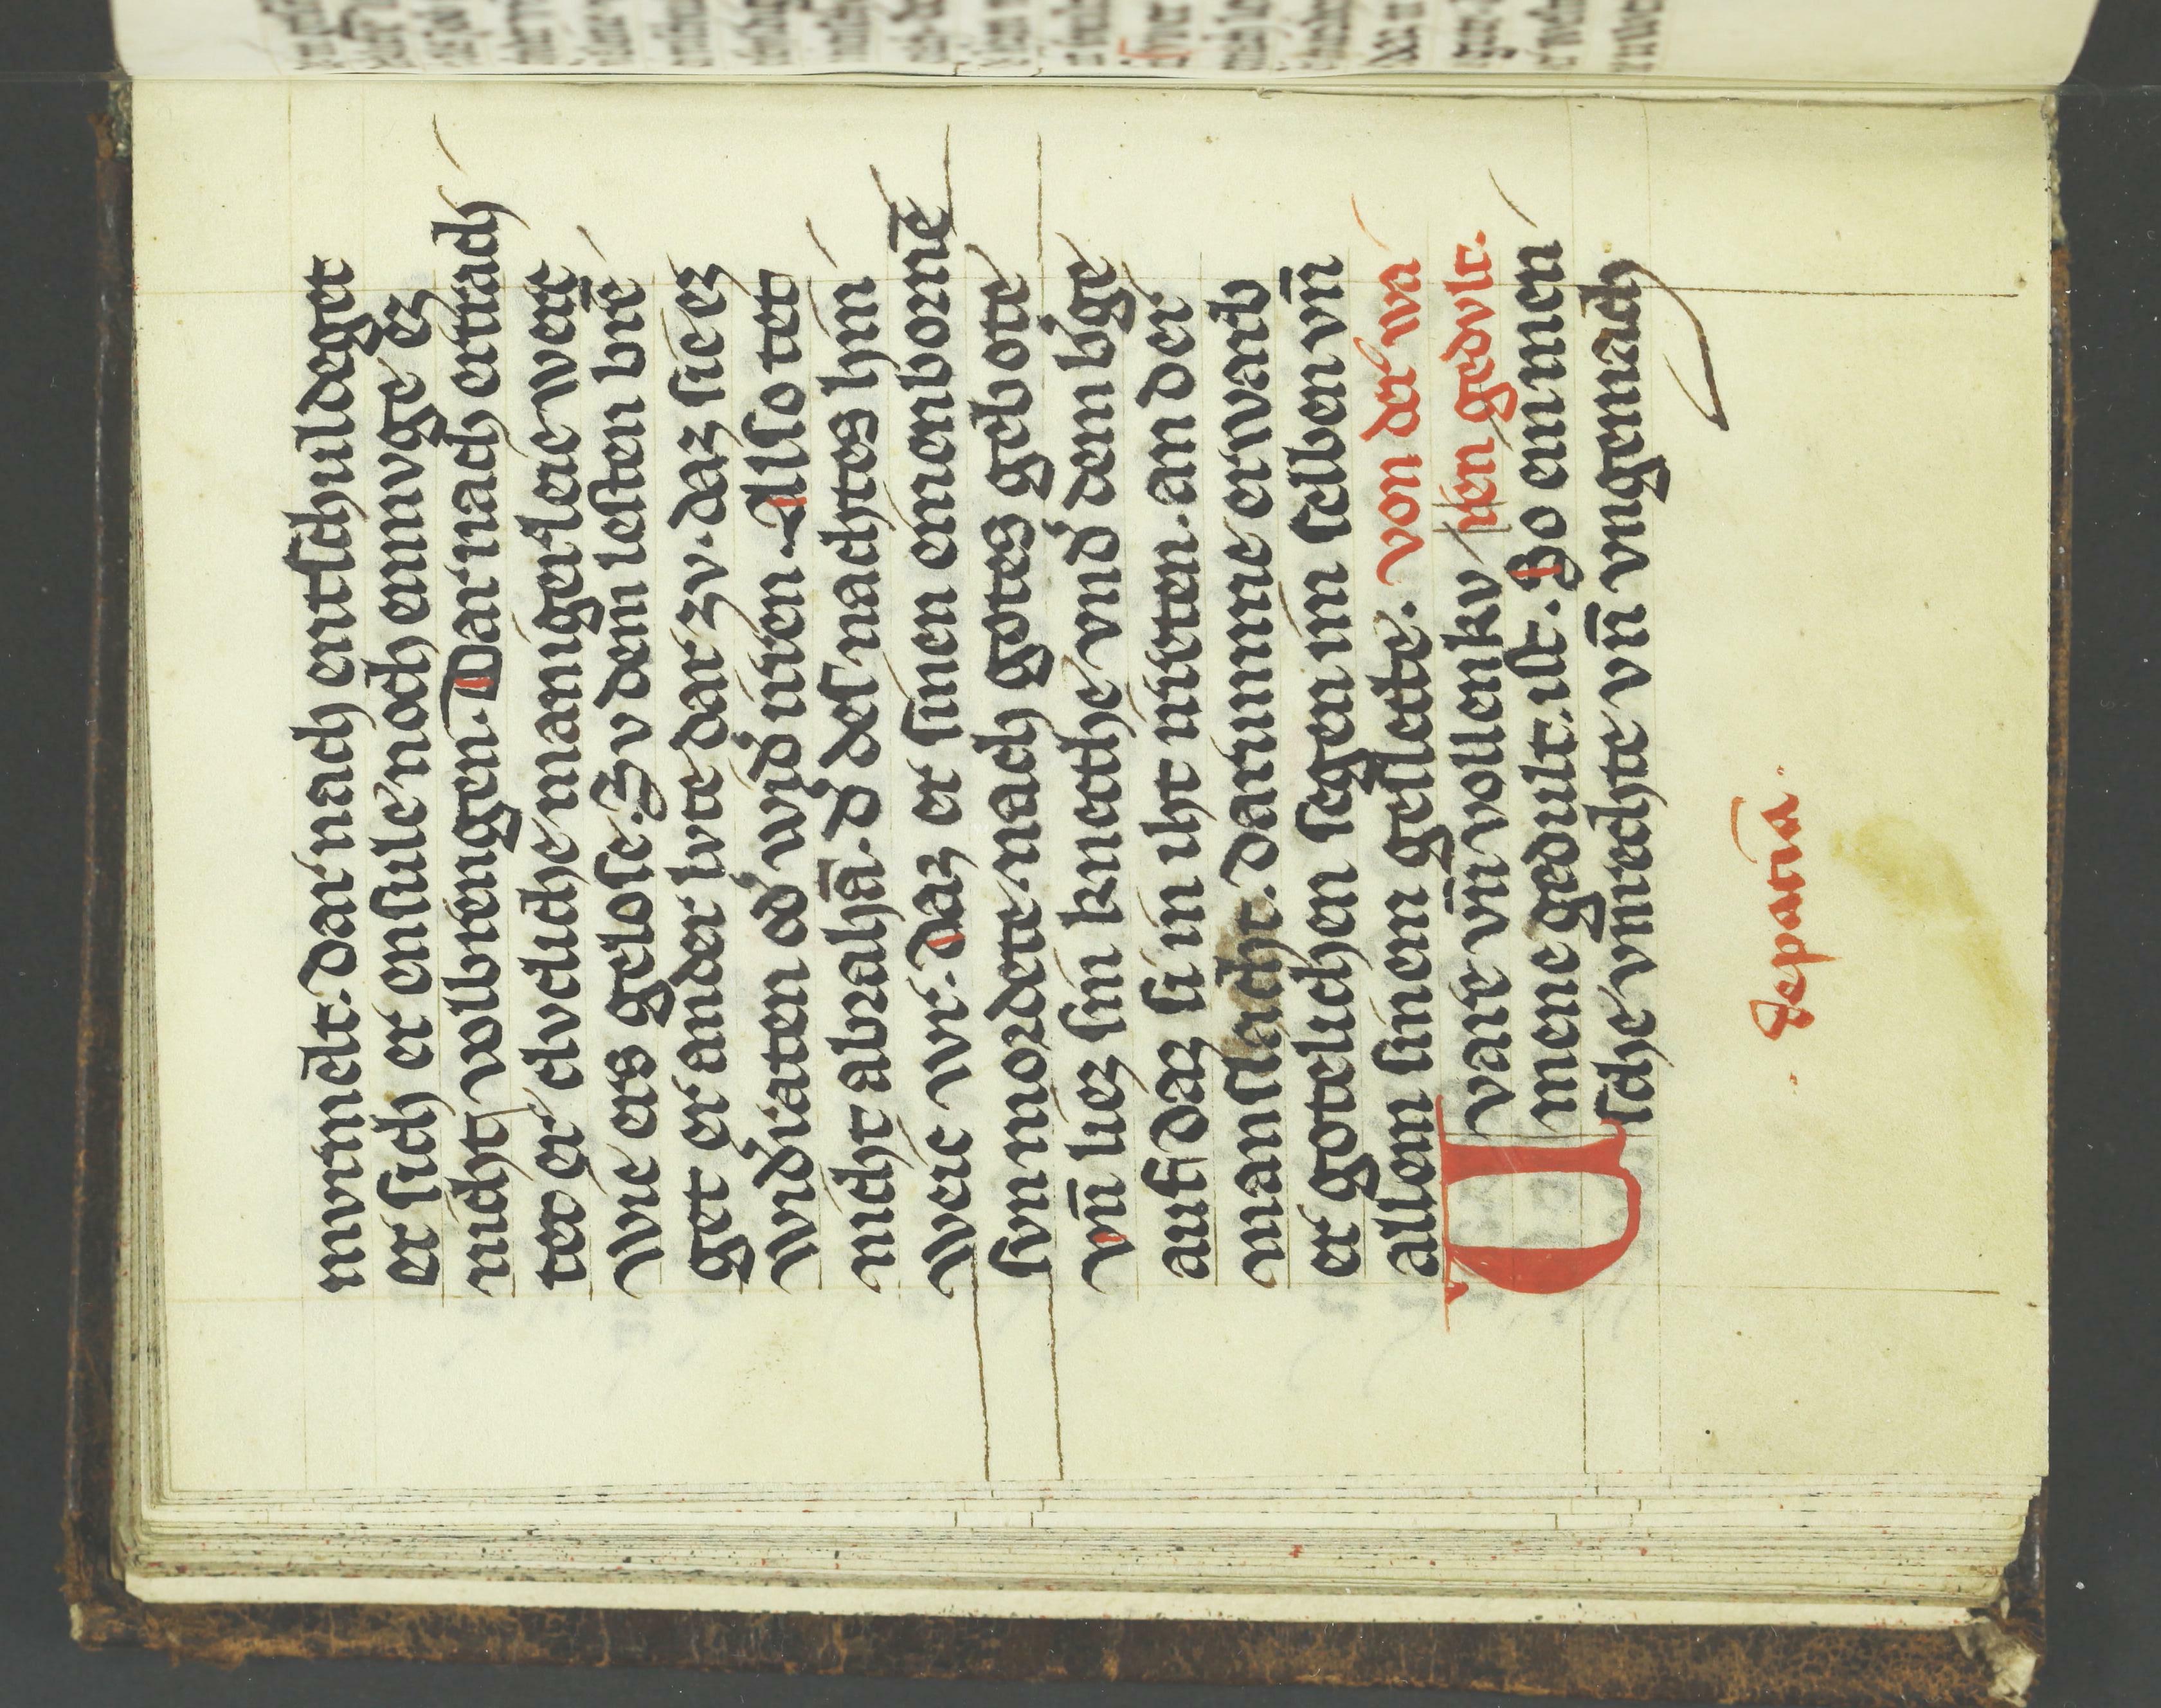 mvrmēlt. dar nach entschuldeget
er sich er ensule noch enmvge ez
nicht volbrengen. Dar nach ertrach
tet er etvcliche maniger leie wert
wie ers gelose. Zv dem lesten brīe
get er ander lvte dar zv. daz sie ez
widꝛaten od᾽ wid᾽ irren. Also tet
nicht abrahā. d᾽ des nachtes hin
wec wr. daz er sinen einenbornē
svn mordete. nach gotes gebote
vn̄ liez sin knecthe vnd᾽ dem b᾽ge
auf daz si in iht irreten. an der
manslacht. darumme erwarb
er gotelichen segen im selben vn̄
allem sinem geslecte. von der wa
ren gedvlt.
Vare vn̄ vollenkv
mene gedult. ist. So ein men
sche vn̄rechte vn̄ vngemach
De patiēn̄a.